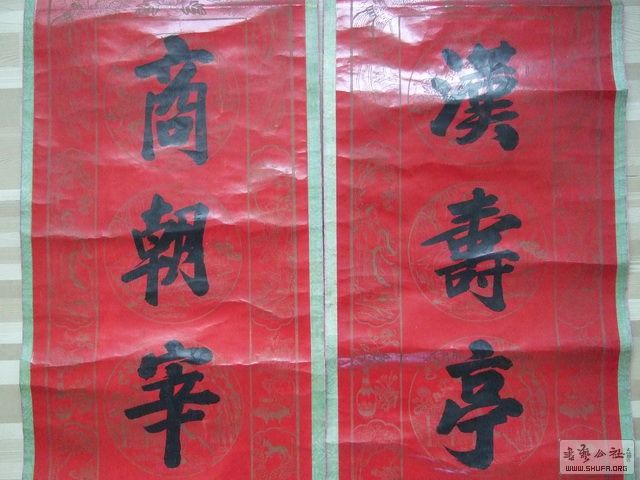 漢壽亭
商朝宰
書藝公社
WWW.SHUFA.ORG